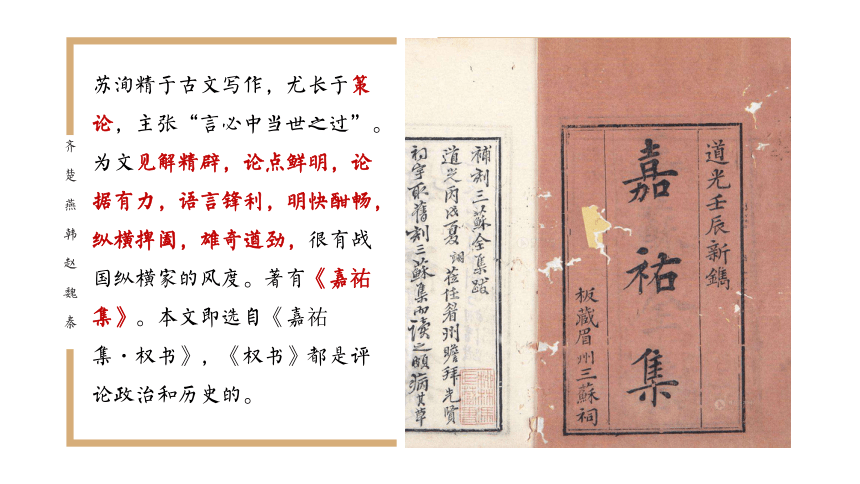 苏洵精于古文写作，尤长于策
论，主张“言必中当世之过”。
为文见解精辟，论点鲜明，论
据有力，语言锋利，明快酣畅，
纵横捭阖，雄奇遒劲，很有战
国纵横家的风度。著有《嘉祐
集》。本文即选自《嘉祐
集·权书》，《权书》都是评
论政治和历史的。
齐
楚
燕
韩
赵
魏
秦
道光壬辰新鐫
嘉祐集
板藏眉州三蘇祠
補刻三蘇全集跋
道光丙戌夏翊莅任眉州瞻拜先賢
祠宇取舊刻三蘇集而讀之頗病其草